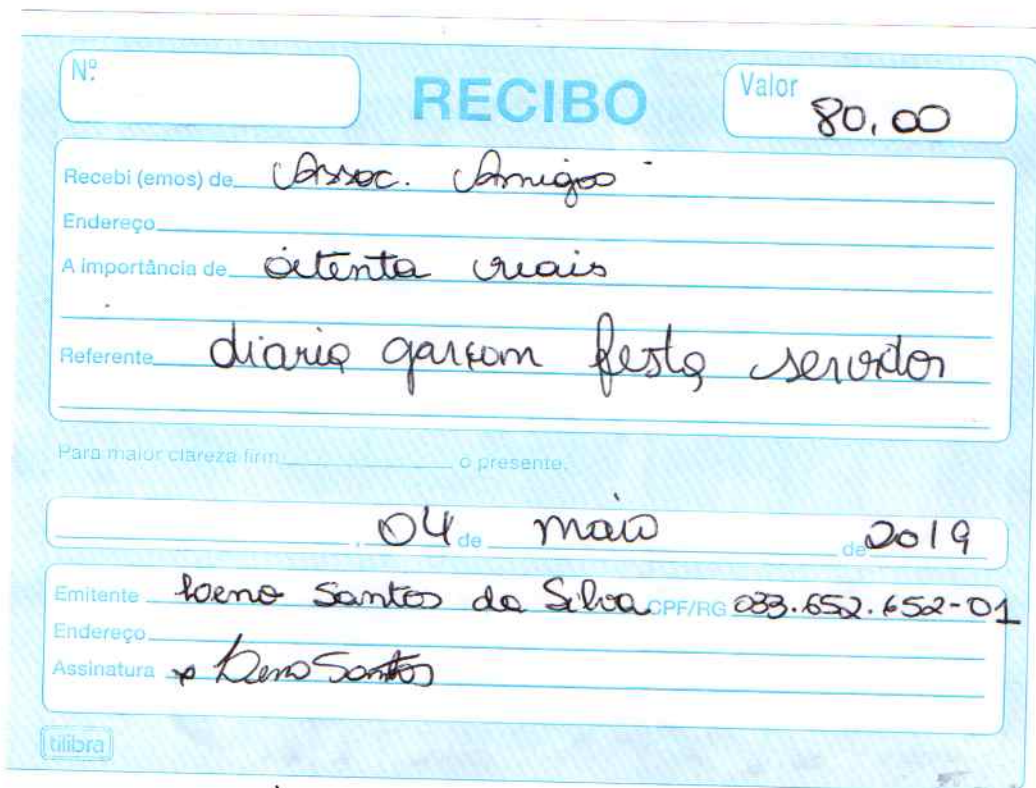 Nº
RECIBO
Valor 80,00
Recebi (emos) de Assoc. Amigos
Endereço
A importância de oitenta reais
Referente diaria garçom festa servidor
Para maior clareza firm o presente.
, 04 de maio de 2019
Emitente Santos da Silva CPF/RG 033.652.652-01
Endereço
Assinatura x Santos
tilibra